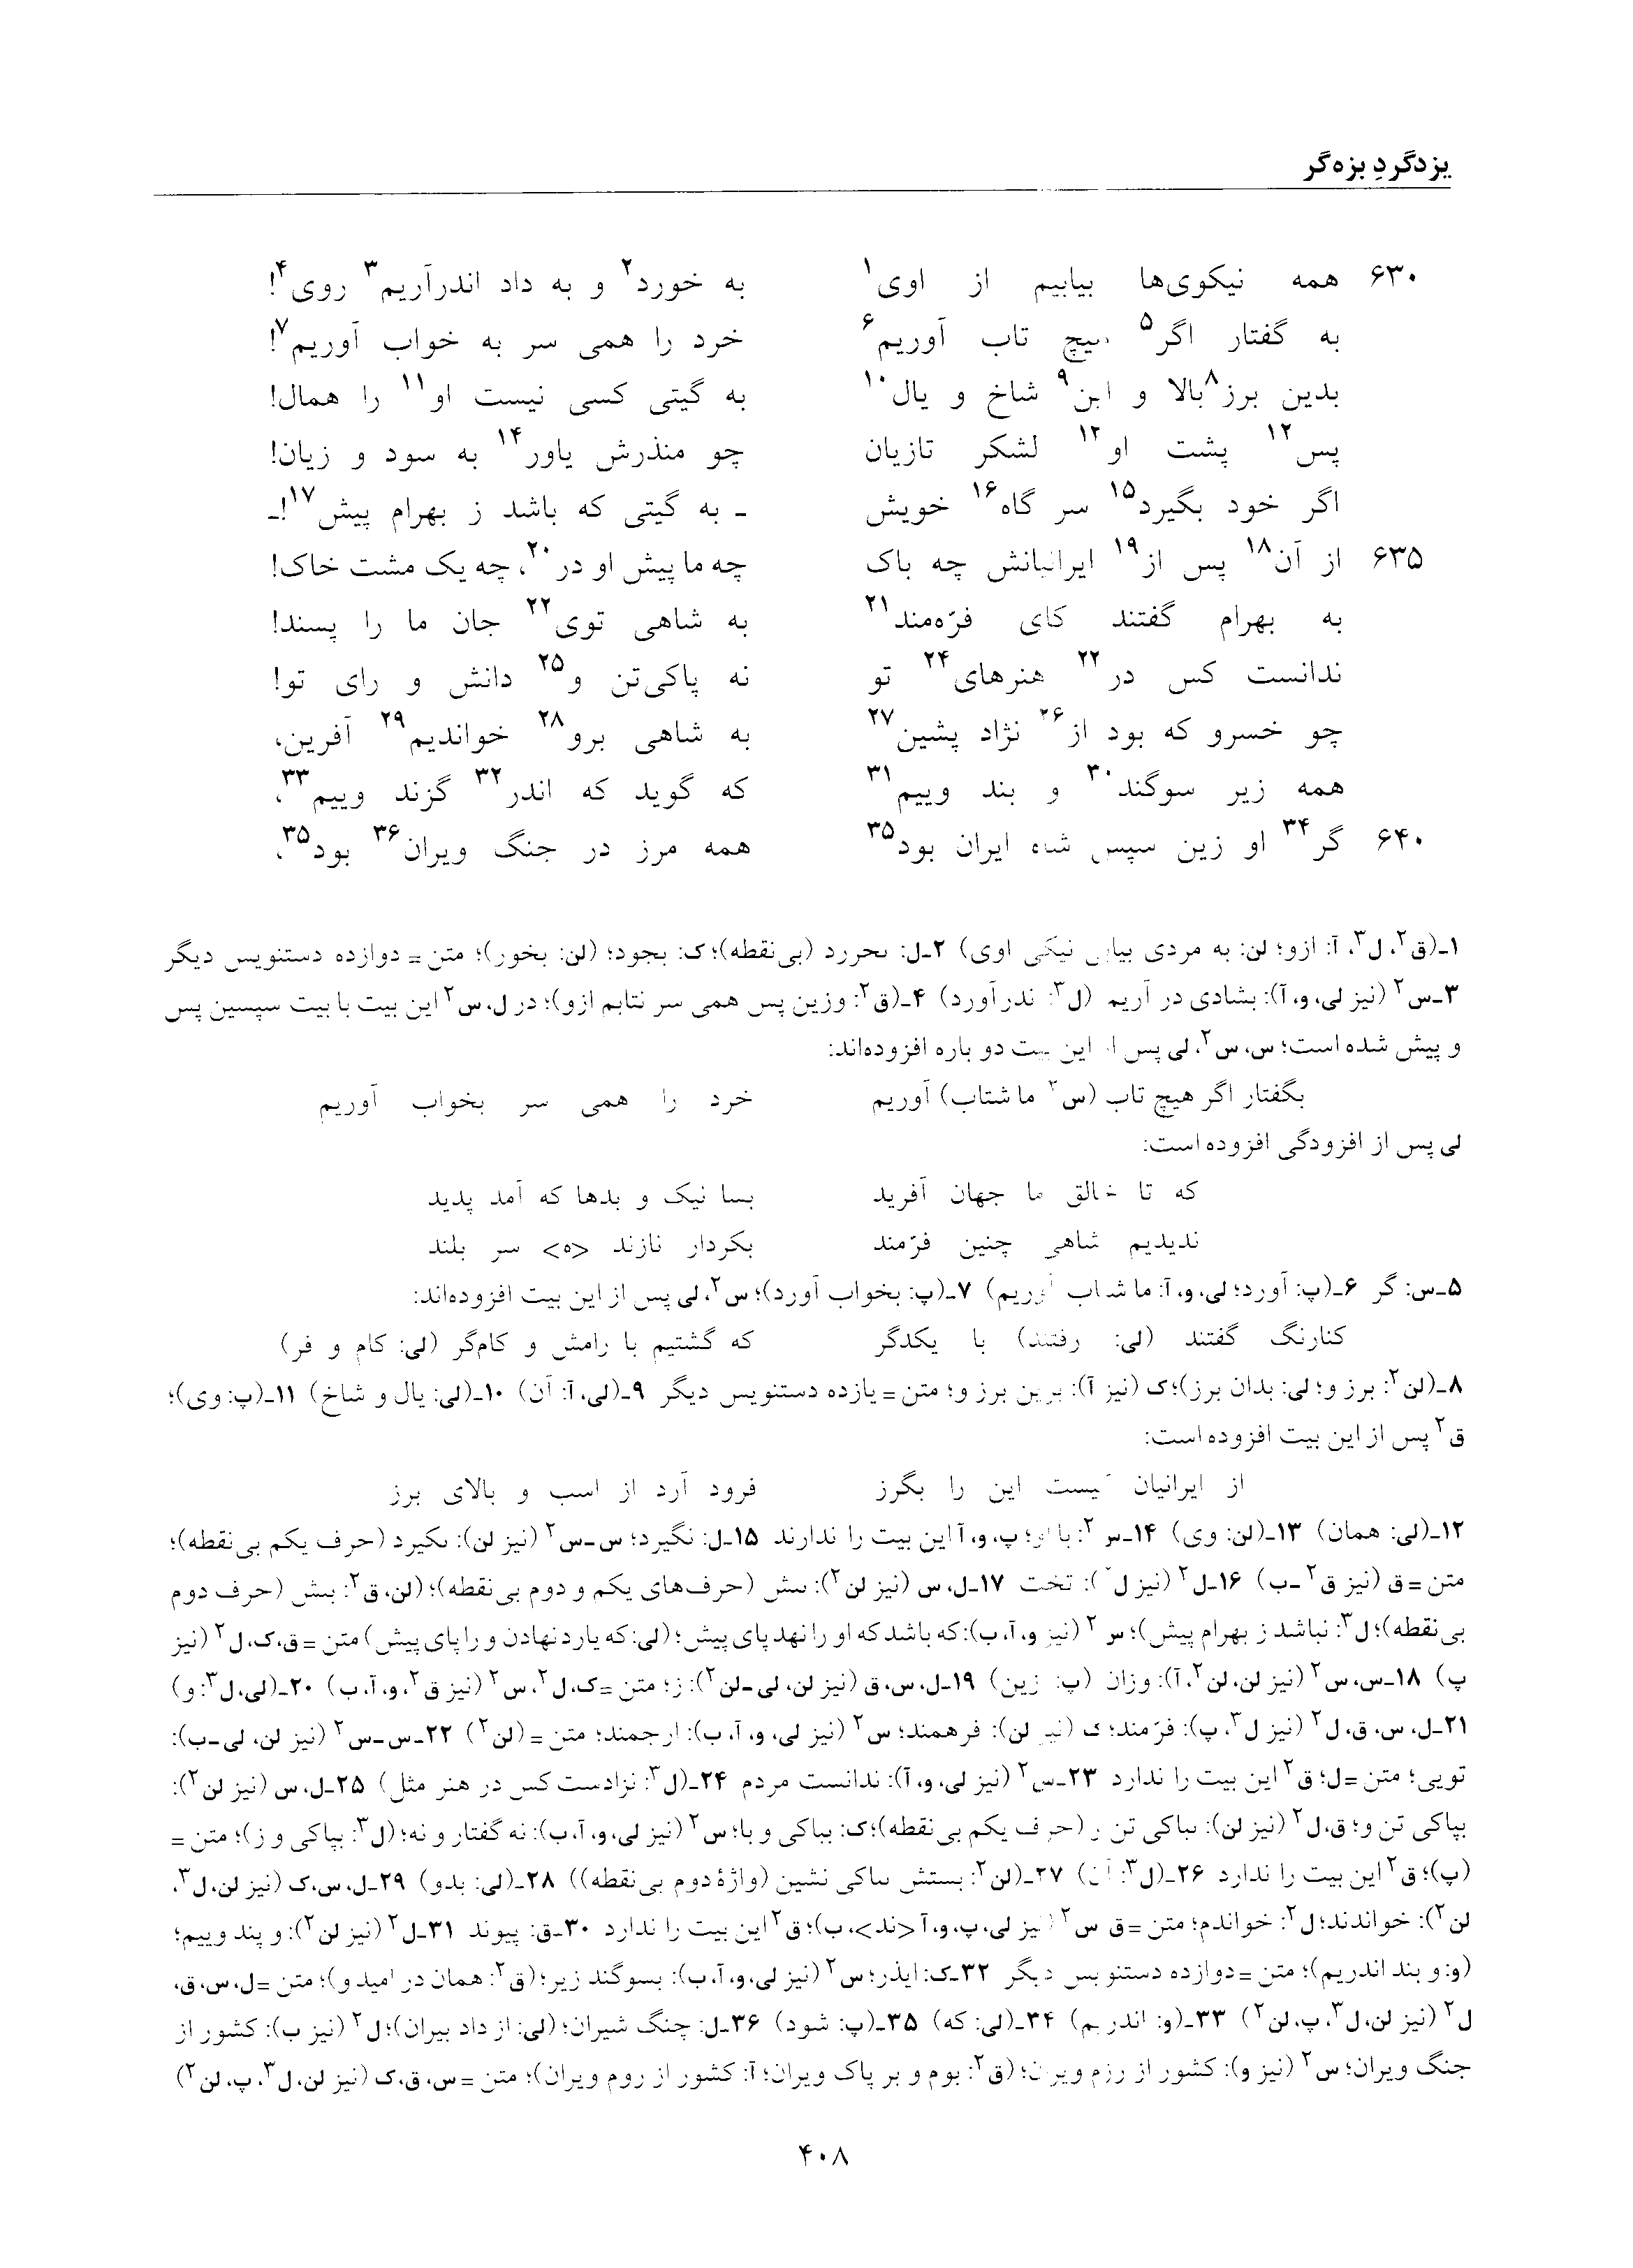 یزدگردِ بزه‌گر
۶۳۰ همه نیکوی‌ها بیابیم از اوی۱ به خورد۲ و به داد اندرآریم۳ روی۴!
به گفتار اگر۵ هیچ تاب آوریم۶ خرد را همی سر به خواب آوریم۷!
بدین برز۸بالا و این۹ شاخ و یال۱۰ به گیتی کسی نیست او۱۱ را همال!
پس۱۲ پشت او۱۳ لشکر تازیان چو منذرش یاور۱۴ به سود و زیان!
اگر خود بگیرد۱۵ سر گاه۱۶ خویش ـ به گیتی که باشد ز بهرام پیش۱۷!ـ
۶۳۵ از آن۱۸ پس از۱۹ ایرانیانش چه باک چه ما پیش او در۲۰، چه یک مشت خاک!
به بهرام گفتند کای فرّه‌مند۲۱ به شاهی توی۲۲ جان ما را پسند!
ندانست کس در۲۳ هنرهای۲۴ تو نه پاکی‌تن و۲۵ دانش و رای تو!
چو خسرو که بود از۲۶ نژاد پشین۲۷ به شاهی برو۲۸ خواندیم۲۹ آفرین،
همه زیر سوگند۳۰ و بند وییم۳۱ که گوید که اندر۳۲ گزند وییم۳۳،
۶۴۰ گر۳۴ او زین سپس شاه ایران بود۳۵ همه مرز در جنگ ویران۳۶ بود۳۵،
۱ـ(ق۲، ل۳، آ: ازو؛ لن: به مردی بیابی نیکی اوی) ۲ـل: بحررد (بی‌نقطه)؛ ک: بجود؛ (لن: بخور)؛ متن = دوازده دستنویس دیگر
۳ـس۲ (نیز لی، و، آ): بشادی در آریم (ل۳: ندرآورد) ۴ـ(ق۲: وزین پس همی سر نتابم ازو)؛ در ل، س۲ این بیت با بیت سپسین پس
و پیش شده است؛ س، س۲، لی پس از این بیت دو باره افزوده‌اند:
بگفتار اگر هیچ تاب (س۲ ما شتاب) آوریم خرد را همی سر بخواب آوریم
لی پس از افزودگی افزوده است:
که تا خالق ما جهان آفرید بسا نیک و بدها که آمد پدید
ندیدیم شاهی چنین فرّمند بکردار نازند <ه> سر بلند
۵ـس: گر ۶ـ(پ: آورد؛ لی، و، آ: ما شتاب آوریم) ۷ـ(پ: بخواب آورد)؛ س۲، لی پس از این بیت افزوده‌اند:
کنارنگ گفتند (لی: رفتند) با یکدگر که گشتیم با رامش و کام‌گر (لی: کام و فر)
۸ـ(لن۲: برز و؛ لی: بدان برز)؛ ک (نیز آ): برین برز و؛ متن = یازده دستنویس دیگر ۹ـ(لی، آ: آن) ۱۰ـ(لی: یال و شاخ) ۱۱ـ(پ: وی)؛
ق۲ پس از این بیت افزوده است:
از ایرانیان کیست این را بگرز فرود آرد از اسب و بالای برز
۱۲ـ(لی: همان) ۱۳ـ(لن: وی) ۱۴ـس۲: با او؛ پ، و، آ این بیت را ندارند ۱۵ـل: نگیرد؛ س‌ـس۲ (نیز لن): ىکیرد (حرف یکم بی‌نقطه)؛
متن = ق (نیز ق۲ـب) ۱۶ـل۲ (نیز ل۳): تخت ۱۷ـل، س (نیز لن۲): ىىش (حرف‌های یکم و دوم بی‌نقطه)؛ (لن، ق۲: بىش (حرف دوم
بی‌نقطه)؛ ل۳: نباشد ز بهرام پیش)؛ س۲ (نیز و، آ، ب): که باشد که او را نهد پای پیش؛ (لی: که یارد نهادن و را پای پیش) متن = ق، ک، ل۲ (نیز
پ) ۱۸ـس، س۲ (نیز لن، لن۲، آ): وزان (پ: زین) ۱۹ـل، س، ق (نیز لن، لی‌ـلن۲): ز؛ متن = ک، ل۲، س۲ (نیز ق۲، و، آ، ب) ۲۰ـ(لی، ل۳: و)
۲۱ـل، س، ق، ل۲ (نیز ل۳، پ): فرّمند؛ ک (نیز لن): فرهمند؛ س۲ (نیز لی، و، آ، ب): ارجمند؛ متن = (لن۲) ۲۲ـس‌ـس۲ (نیز لن، لی‌ـب):
تویی؛ متن = ل؛ ق۲ این بیت را ندارد ۲۳ـس۲ (نیز لی، و، آ): ندانست مردم ۲۴ـ(ل۳: نزادست کس در هنر مثل) ۲۵ـل، س (نیز لن۲):
بپاکی تن و؛ ق، ل۲ (نیز لن): ىباکی تن و (حرف یکم بی‌نقطه)؛ ک: بباکی و با؛ س۲ (نیز لی، و، آ، ب): نه گفتار و نه؛ (ل۳: بپاکی و ز)؛ متن =
(پ)؛ ق۲ این بیت را ندارد ۲۶ـ(ل۳: آن) ۲۷ـ(لن۲: بستش ىىاکی نشین (واژهٔ دوم بی‌نقطه)) ۲۸ـ(لی: بدو) ۲۹ـل، س، ک (نیز لن، ل۳،
لن۲): خواندند؛ ل۲: خواندم؛ متن = ق س۲ (نیز لی، پ، و، آ <ند>، ب)؛ ق۲ این بیت را ندارد ۳۰ـق: پیوند ۳۱ـل۲ (نیز لن۲): و پند وییم؛
(و: و بند اندریم)؛ متن = دوازده دستنویس دیگر ۳۲ـک: ایذر؛ س۲ (نیز لی، و، آ، ب): بسوگند زیر؛ (ق۲: همان در امید و)؛ متن = ل، س، ق،
ل۲ (نیز لن، ل۳، پ، لن۲) ۳۳ـ(و: اندریم) ۳۴ـ(لی: که) ۳۵ـ(پ: شود) ۳۶ـل: چنگ شیران؛ (لی: از داد بیران)؛ ل۲ (نیز ب): کشور از
جنگ ویران؛ س۲ (نیز و): کشور از رزم ویران؛ (ق۲: بوم و بر پاک ویران؛ آ: کشور از روم ویران)؛ متن = س، ق، ک (نیز لن، ل۳، پ، لن۲)
۴۰۸